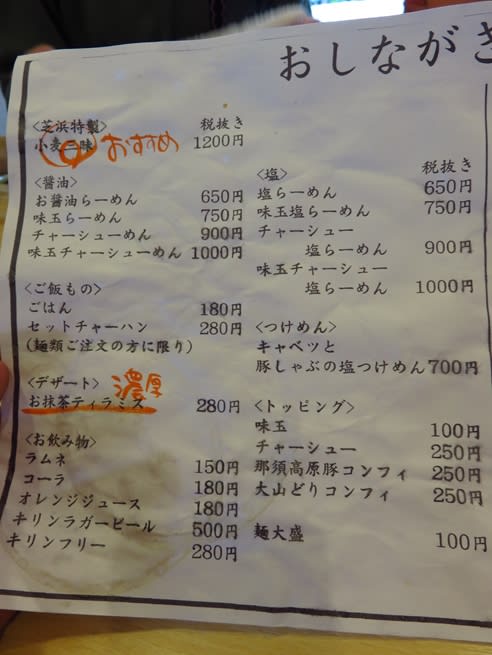 おしながき
〈芝浜特製〉 税抜き
小麦三昧 おすすめ 1200円
〈醤油〉
お醤油らーめん 650円
味玉らーめん 750円
チャーシューめん 900円
味玉チャーシューめん 1000円
〈ご飯もの〉
ごはん 180円
セットチャーハン 280円
(麺類ご注文の方に限り)
〈デザート〉 濃厚
お抹茶ティラミス 280円
〈お飲み物〉
ラムネ 150円
コーラ 180円
オレンジジュース 180円
キリンラガービール 500円
キリンフリー 280円
税抜き
〈塩〉
塩らーめん 650円
味玉塩らーめん 750円
チャーシュー
塩らーめん 900円
味玉チャーシュー
塩らーめん 1000円
〈つけめん〉
キャベツと
豚しゃぶの塩つけめん 700円
〈トッピング〉
味玉 100円
チャーシュー 250円
那須高原豚コンフィ 250円
大山どりコンフィ 250円
麺大盛 100円